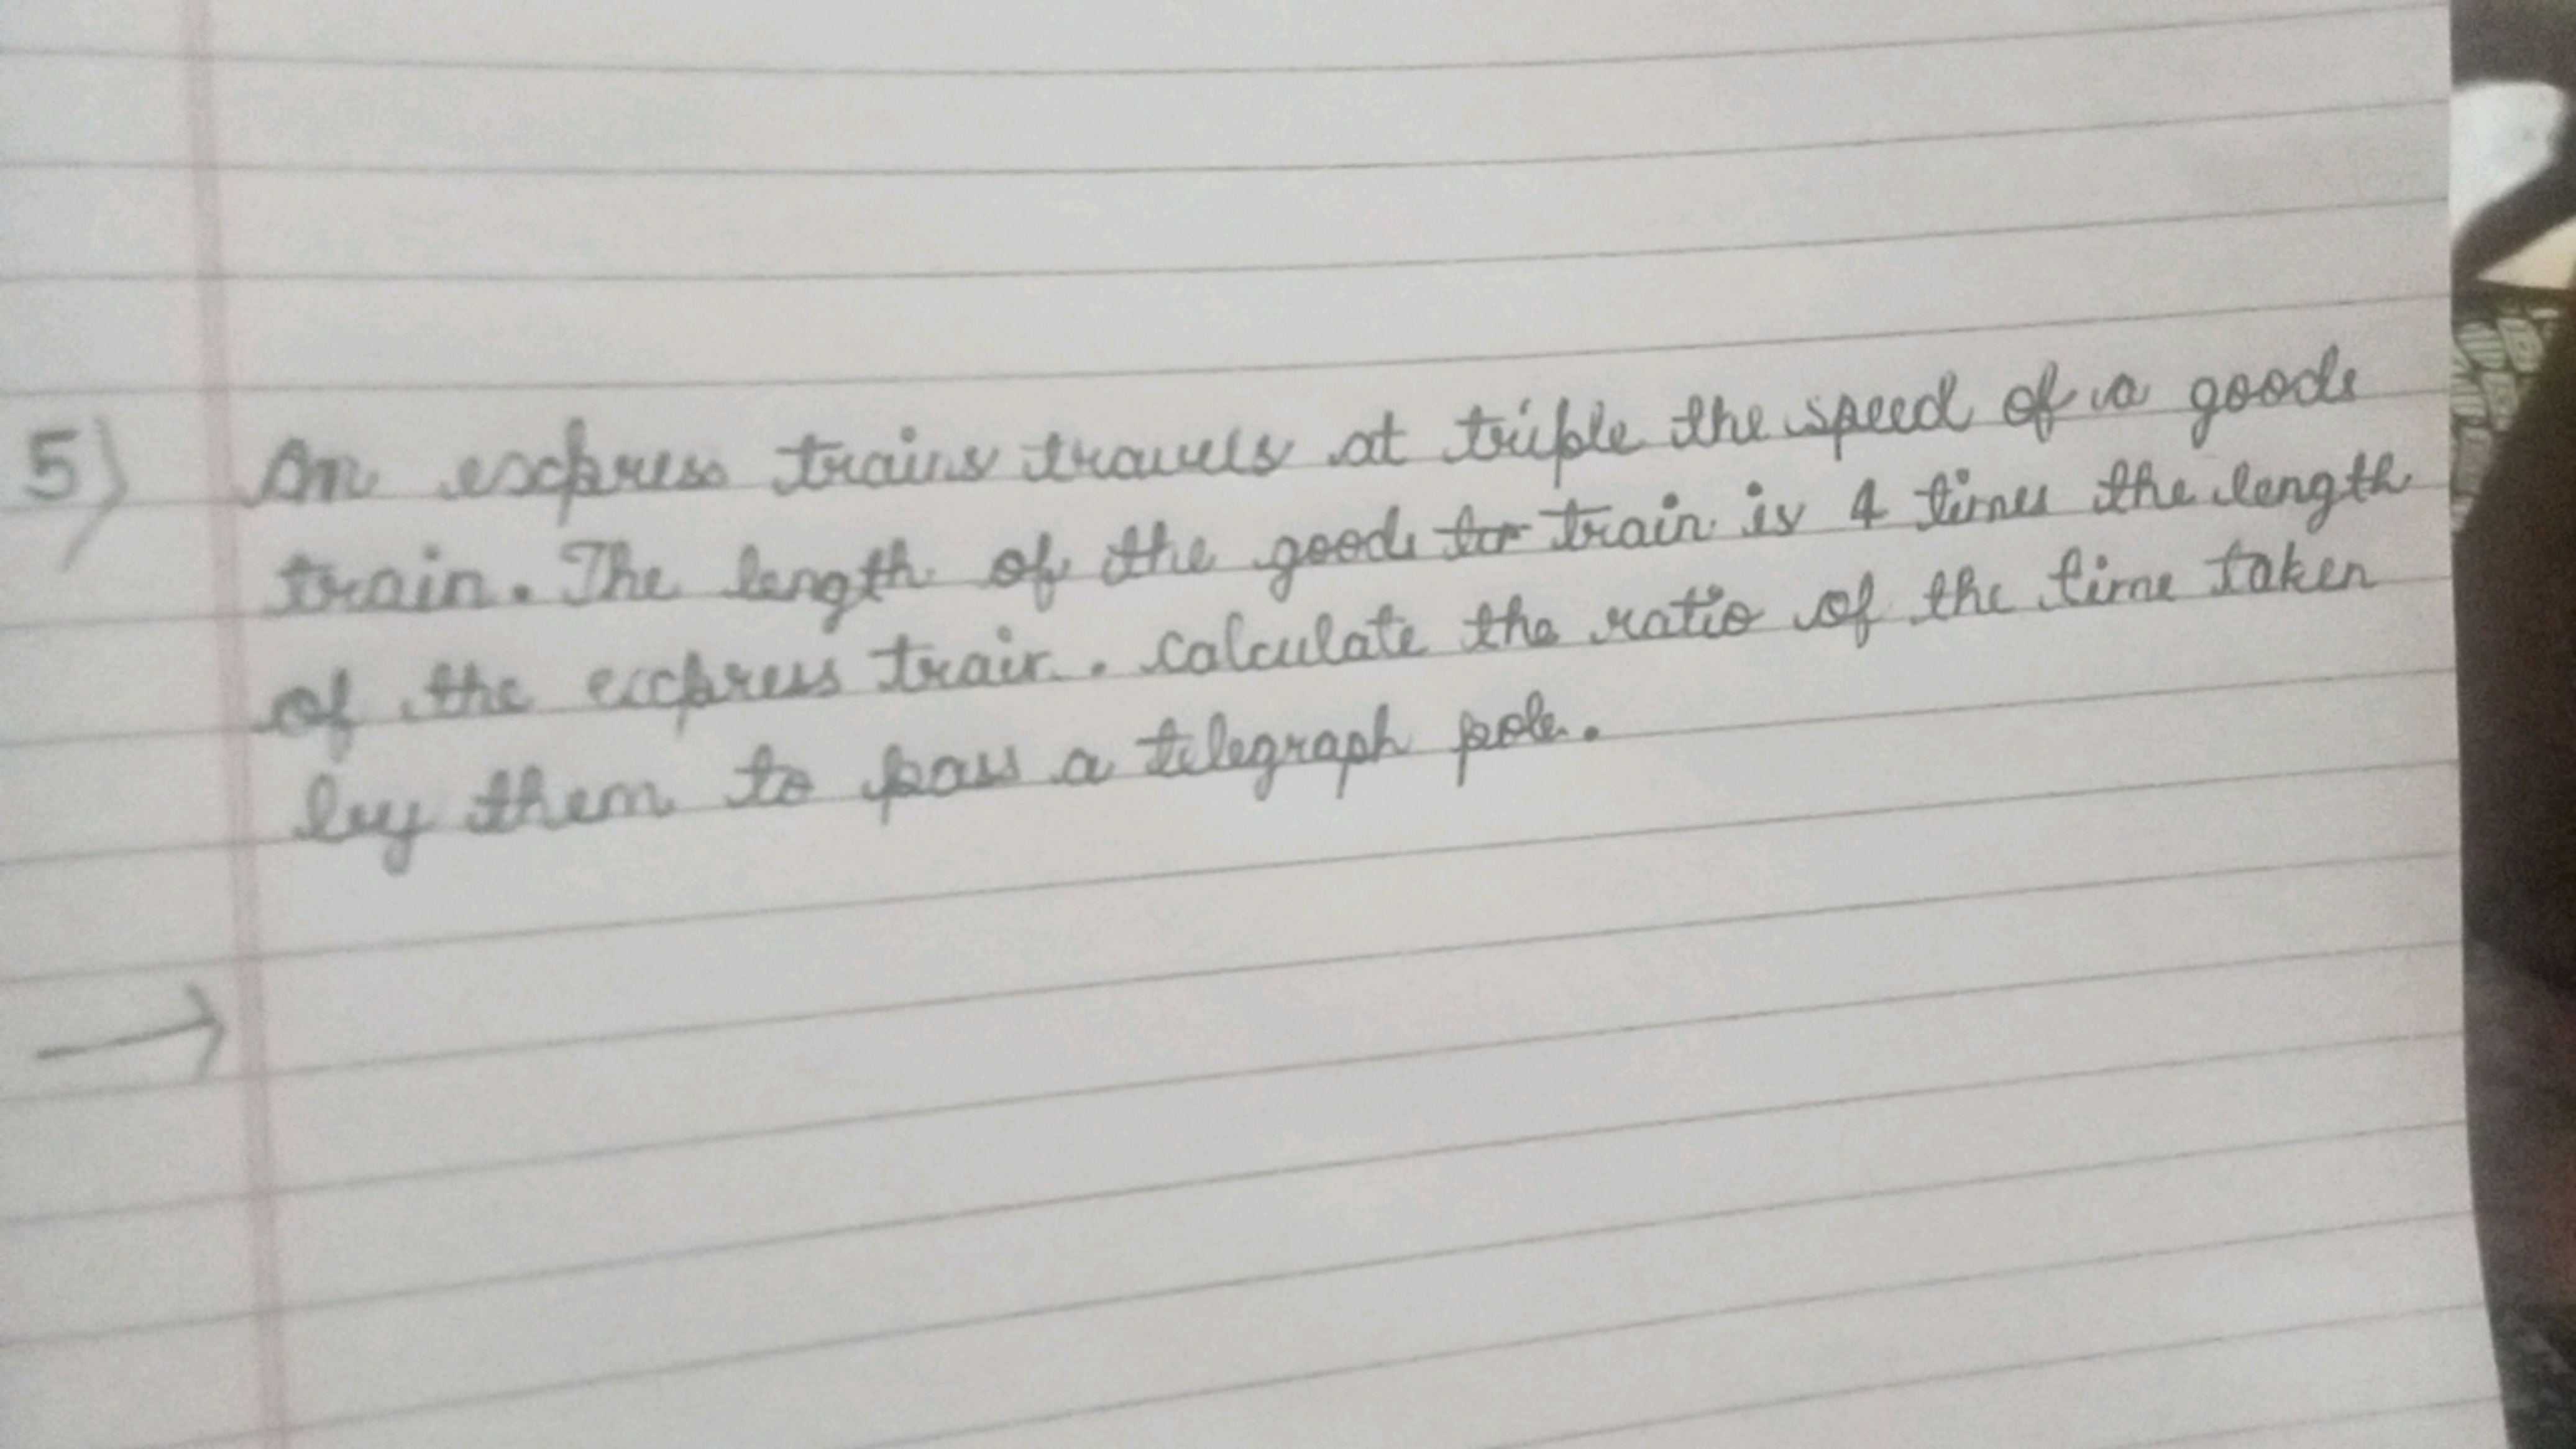 5) An express trains travels at triple the speed of a goods
train. The length of the goods tr train is 4 times the length
of the express train. Calculate the ratio of the time taken
by them to pass a telegraph pole.
→